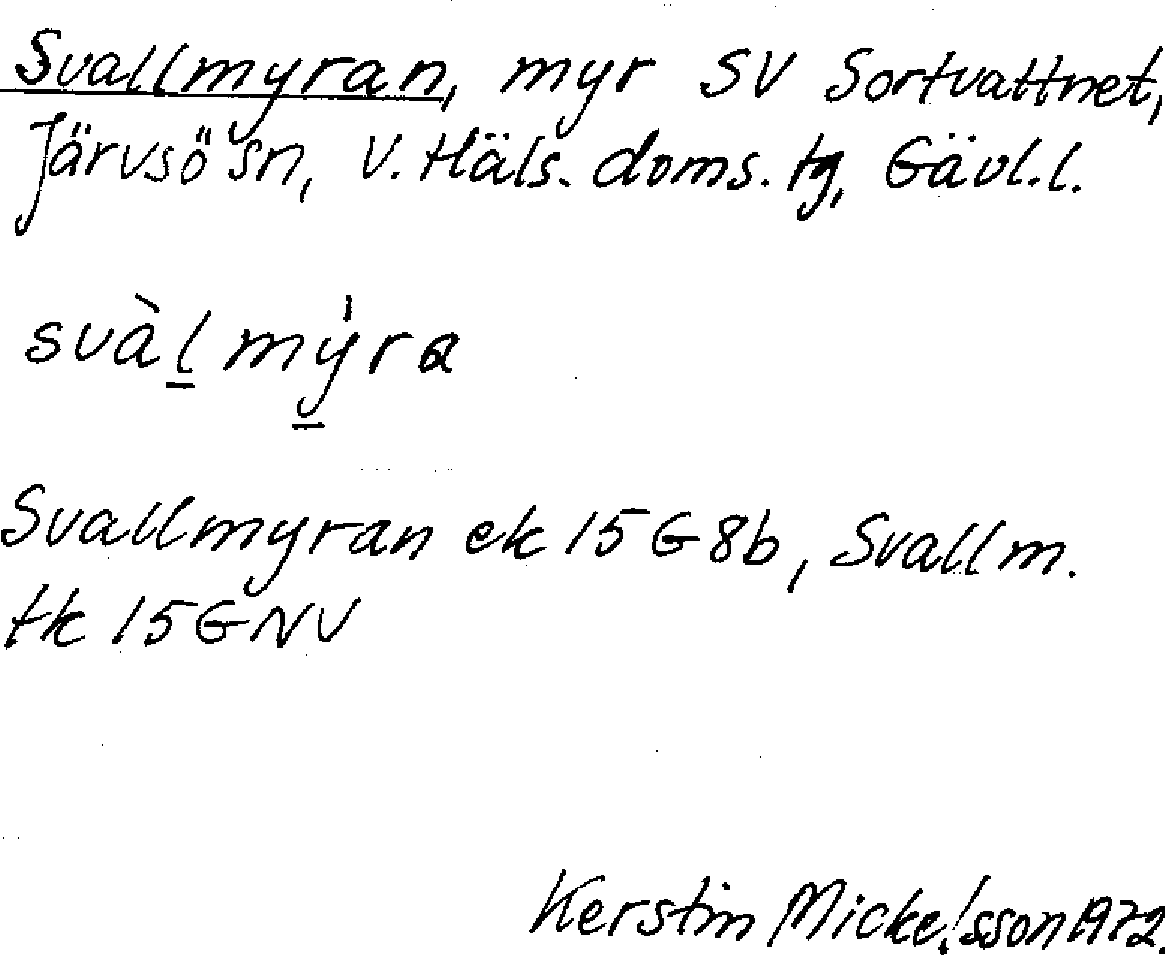 Svallmyran, myr SV Sortvattnet,
Järvsö sn, V. Häls. doms. tg, Gävl.l.
svàl̲mẏ̲ra
Svallmyran ek 15G8b, Svallm.
tk 15GNV
Kerstin Mickelsson 1972.